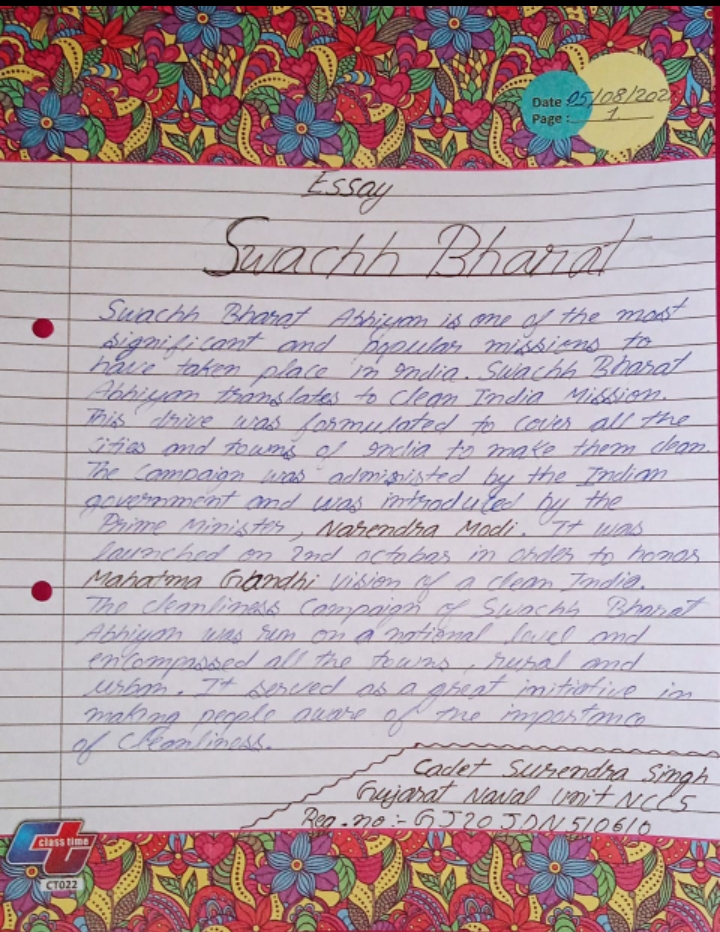 Date 05/08/202
Page : 1
Essay
Swachh Bharat
Swachh Bharat Abhiyan is one of the most
significant and popular missions to
have taken place in India. Swachh Bharat
Abhiyan translates to clean India Mission.
This drive was formulated to cover all the
cities and towns of India to make them clean.
The Campaign was administed by the Indian
government and was introduced by the
Prime Minister, Narendra Modi. It was
launched on 2nd octobar in order to honor
Mahatma Gandhi vision of a clean India.
The cleanliness Campaign of Swachh Bharat
Abhiyan was run on a national level and
encompassed all the towns, rural and
urban. It served as a great initiative in
making people aware of the importance
of Cleanliness.
Cadet Surendra Singh
Gujarat Naval Unit NCCS
Reg.no:- GJ20JDN510610
class time
CT022